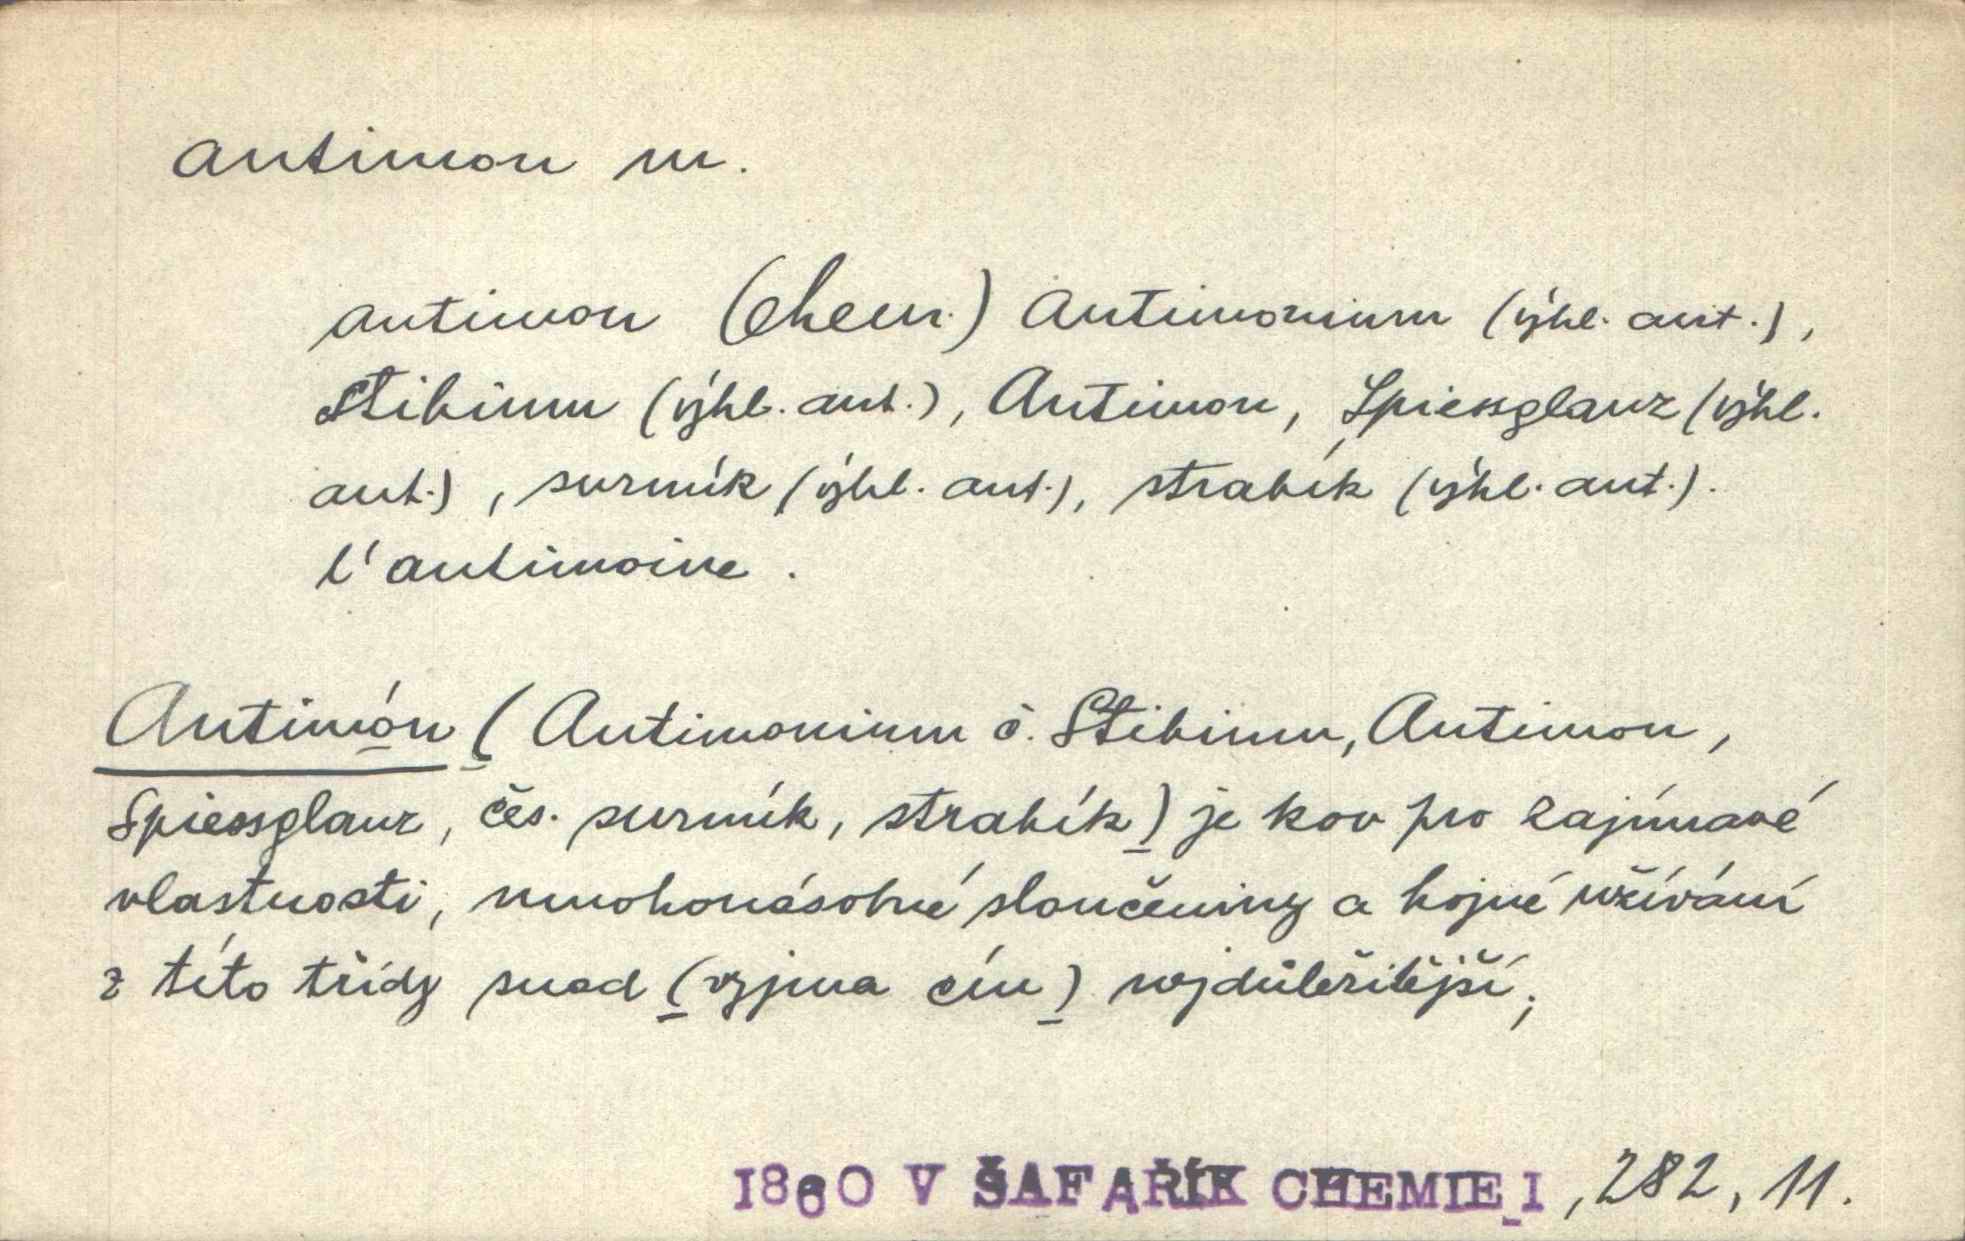 antimon m.
antimon (chem.) Antimonium (výhl. ant.),
Stibium (výhl. ant.), Antimon, Spiessglanz (výhl.
ant.), surmík (výhl. ant.), strabík (výhl. ant.).
l'antimoine.
Antimón (Antimonium č. Stibium, Antimon,
Spiessglanz, čes. surmík, strabík) je kov pro zajímavé
vlastnosti, mnohonásobné sloučeniny a hojné užívání
z této třídy snad (vyjma cín) nejdůležitější;
1860 V ŠAFAŘÍK CHEMIE I, 282, 11.